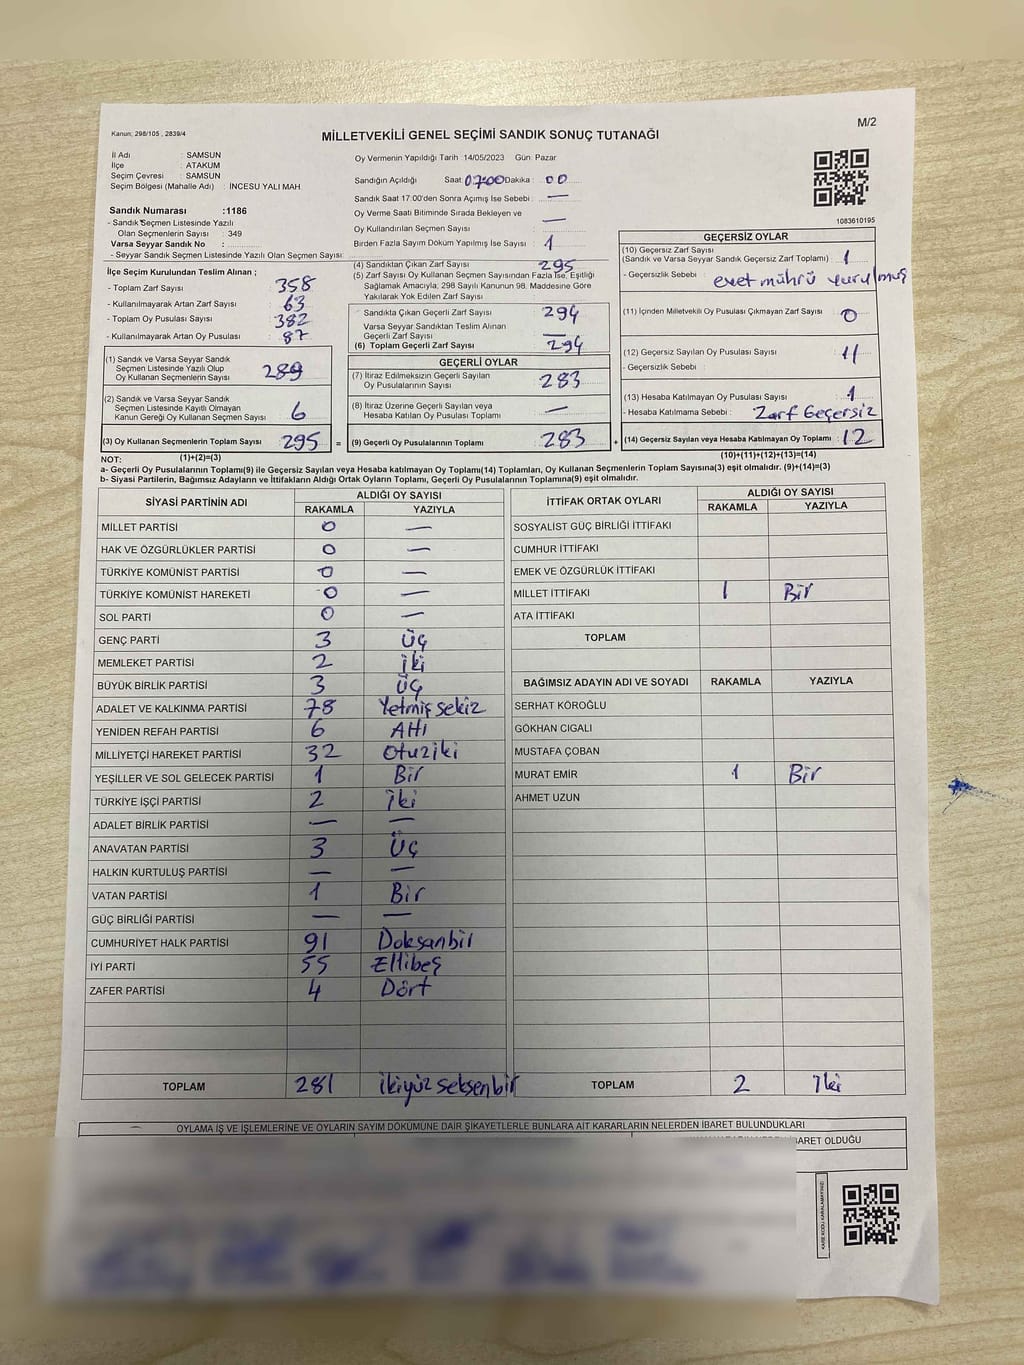 M/2
Kanun; 298/105 , 2839/4
MİLLETVEKİLİ GENEL SEÇİMİ SANDIK SONUÇ TUTANAĞI
İl Adı : SAMSUN
İlçe : ATAKUM
Seçim Çevresi : SAMSUN
Seçim Bölgesi (Mahalle Adı) : İNCESU YALI MAH
Sandık Numarası :1186
- Sandık Seçmen Listesinde Yazılı
Olan Seçmenlerin Sayısı : 349
Varsa Seyyar Sandık No :
- Seyyar Sandık Seçmen Listesinde Yazılı Olan Seçmen Sayısı:
Oy Vermenin Yapıldığı Tarih :14/05/2023 Gün: Pazar
Sandığın Açıldığı Saat: 07:00 Dakika : 00
Sandık Saat 17:00'den Sonra Açımış İse Sebebi : —
Oy Verme Saati Bitiminde Sırada Bekleyen ve
Oy Kullandırılan Seçmen Sayısı : —
Birden Fazla Sayım Döküm Yapılmış İse Sayısı : 1
1083610195
İlçe Seçim Kurulundan Teslim Alınan ;
- Toplam Zarf Sayısı : 358
- Kullanılmayarak Artan Zarf Sayısı : 63
- Toplam Oy Pusulası Sayısı : 382
- Kullanılmayarak Artan Oy Pusulası : 87
(1) Sandık ve Varsa Seyyar Sandık
Seçmen Listesinde Yazılı Olup
Oy Kullanan Seçmenlerin Sayısı : 289
(2) Sandık ve Varsa Seyyar Sandık
Seçmen Listesinde Kayıtlı Olmayan
Kanun Gereği Oy Kullanan Seçmen Sayısı : 6
(3) Oy Kullanan Seçmenlerin Toplam Sayısı : 295 =
(1)+(2)=(3)
(4) Sandıktan Çıkan Zarf Sayısı : 295
(5) Zarf Sayısı Oy Kullanan Seçmen Sayısından Fazla İse, Eşitliği
Sağlamak Amacıyla, 298 Sayılı Kanunun 98. Maddesine Göre
Yakılarak Yok Edilen Zarf Sayısı :
Sandıkta Çıkan Geçerli Zarf Sayısı : 294
Varsa Seyyar Sandıktan Teslim Alınan
Geçerli Zarf Sayısı : —
(6) Toplam Geçerli Zarf Sayısı : 294
GEÇERLİ OYLAR
(7) İtiraz Edilmeksizin Geçerli Sayılan
Oy Pusulalarının Sayısı : 283
(8) İtiraz Üzerine Geçerli Sayılan veya
Hesaba Katılan Oy Pusulası Toplamı : —
(9) Geçerli Oy Pusulalarının Toplamı : 283 +
GEÇERSİZ OYLAR
(10) Geçersiz Zarf Sayısı
(Sandık ve Varsa Seyyar Sandık Geçersiz Zarf Toplamı) : 1
- Geçersizlik Sebebi : evet mührü vurulmuş
(11) İçinden Milletvekili Oy Pusulası Çıkmayan Zarf Sayısı : 0
(12) Geçersiz Sayılan Oy Pusulası Sayısı : 11
- Geçersizlik Sebebi :
(13) Hesaba Katılmayan Oy Pusulası Sayısı : 1
- Hesaba Katılmama Sebebi : Zarf Geçersiz
(14) Geçersiz Sayılan veya Hesaba Katılmayan Oy Toplamı : 12
(10)+(11)+(12)+(13)=(14)
NOT:
a- Geçerli Oy Pusulalarının Toplamı(9) ile Geçersiz Sayılan veya Hesaba katılmayan Oy Toplamı(14) Toplamları, Oy Kullanan Seçmenlerin Toplam Sayısına(3) eşit olmalıdır. (9)+(14)=(3)
b- Siyasi Partilerin, Bağımsız Adayların ve İttifakların Aldığı Ortak Oyların Toplamı, Geçerli Oy Pusulalarının Toplamına(9) eşit olmalıdır.
SİYASİ PARTİNİN ADI ALDIĞI OY SAYISI
RAKAMLA YAZIYLA
MİLLET PARTİSİ 0 —
HAK VE ÖZGÜRLÜKLER PARTİSİ 0 —
TÜRKİYE KOMÜNİST PARTİSİ 0 —
TÜRKİYE KOMÜNİST HAREKETİ 0 —
SOL PARTİ 0 —
GENÇ PARTİ 3 Üç
MEMLEKET PARTİSİ 2 iki
BÜYÜK BİRLİK PARTİSİ 3 üç
ADALET VE KALKINMA PARTİSİ 78 Yetmiş sekiz
YENİDEN REFAH PARTİSİ 6 Altı
MİLLİYETÇİ HAREKET PARTİSİ 32 Otuziki
YEŞİLLER VE SOL GELECEK PARTİSİ 1 Bir
TÜRKİYE İŞÇİ PARTİSİ 2 iki
ADALET BİRLİK PARTİSİ — —
ANAVATAN PARTİSİ 3 Üç
HALKIN KURTULUŞ PARTİSİ — —
VATAN PARTİSİ 1 Bir
GÜÇ BİRLİĞİ PARTİSİ — —
CUMHURİYET HALK PARTİSİ 91 Doksanbir
İYİ PARTİ 55 Ellibeş
ZAFER PARTİSİ 4 Dört
TOPLAM 281 ikiyüz seksenbir
İTTİFAK ORTAK OYLARI ALDIĞI OY SAYISI
RAKAMLA YAZIYLA
SOSYALİST GÜÇ BİRLİĞİ İTTİFAKI
CUMHUR İTTİFAKI
EMEK VE ÖZGÜRLÜK İTTİFAKI
MİLLET İTTİFAKI 1 Bir
ATA İTTİFAKI
TOPLAM
BAĞIMSIZ ADAYIN ADI VE SOYADI RAKAMLA YAZIYLA
SERHAT KÖROĞLU
GÖKHAN CIGALI
MUSTAFA ÇOBAN
MURAT EMİR 1 Bir
AHMET UZUN
TOPLAM 2 İki
OYLAMA İŞ VE İŞLEMLERİNE VE OYLARIN SAYIM DÖKÜMÜNE DAİR ŞİKAYETLERLE BUNLARA AİT KARARLARIN NELERDEN İBARET BULUNDUKLARI
İBARET OLDUĞU
KARE KODU KARALAMAYINIZ!